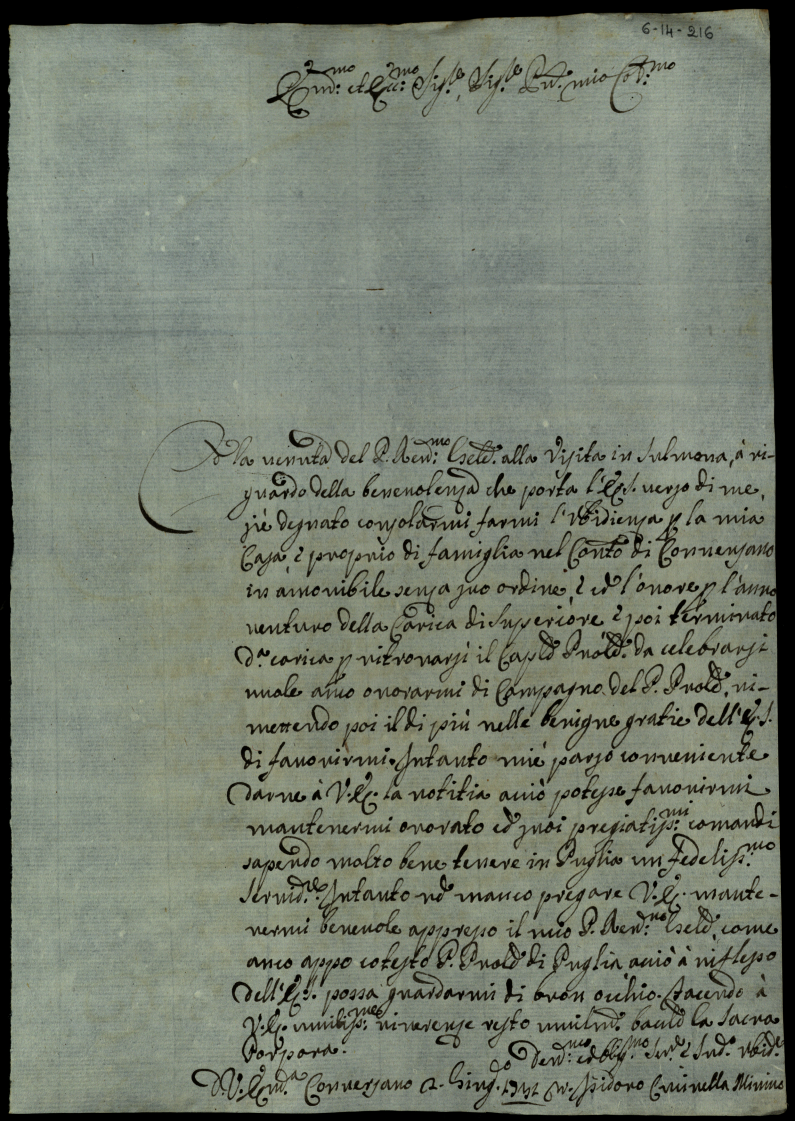 6-14-216
Em.mo et Ecc.mo Sig.re, Sig.re Prn. mio Col.mo
Cō la venuta del P. Rev.mo alla Visita in Sulmona, à ri-
guardo della benevolenza che porta l'E. S. verso di me,
siè degnato consolarmi farmi l'Vbidienza p la mia
Casa, è proprio di famiglia nel Conto di Conversano
in amovibile senza suo ordine, è l'onore p l'anno
venturo della Carica di Superiore è poi terminato
d.a carica p ritrovarsi il Cap. da celebrarsi
vuole anco onorarmi di Compagno del P. ri-
mettendo poi il di più nelle benigne gratie dell'E. S.
di favorirmi. Intanto miè parso conveniente
darne à V. E. la notitia aciò potesse favorirmi
mantenermi onorato suoi pregiatiss.mi comandi
sapendo molto bene tenere in Puglia un fedeliss.mo
Intanto nō manco pregare V. E. mante-
nermi benevole appresso il mio P. Rev.mo come
anco appo cotesto P. di Puglia aciò à riflesso
dell'E. S. possa guardarmi di bron occhio. Facendo à
V. E. umiliss.me riverenze resto umilm. la Sacra
Porpora.
D. V. Em.a Conversano 2. Giug.o
Dev.mo ed obblig.mo
Isidoro Minimo